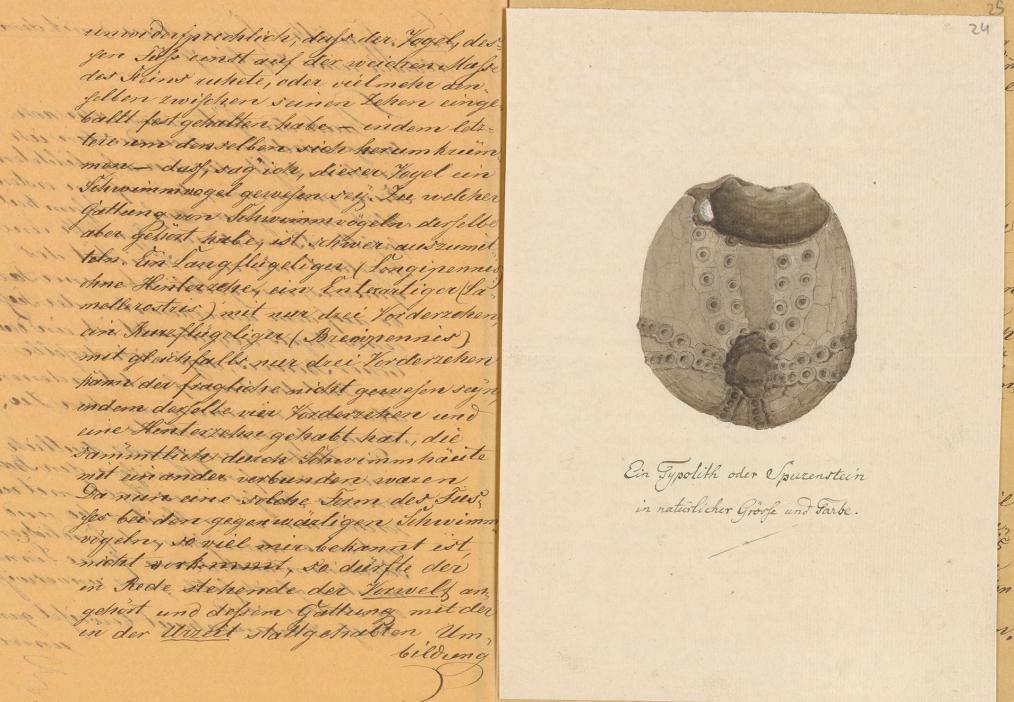 unwidersprechlich, daſs der Vogel, des-
ſen Fuſs einst auf der weichen Maſse
des Steins ruhete, oder vielmehr den-
ſelben zwiſchen seinen Zehen einge-
ballt festgehalten habe — indem letz-
tere um denselben sich herumkrüm-
men — daſs, sag' ich, dieser Vogel ein
Schwimmvogel geweſen seÿ. Zu welcher
Gattung von Schwimmvögeln derſelbe
aber gehört habe, ist schwer auszumit-
teln. Ein Langflügeliger (Longipennis)
ohne Hinterzehe, ein Entenartiger (La-
mellirostris) mit nur drei Vorderzehen,
ein Kurzflügeliger (Brevipennis)
mit gleichfalls nur drei Vorderzehen
kann der fragliche nicht geweſen seÿn,
indem derſelbe vier Vorderzehen und
eine Hinterzehe gehabt hat, die
sämmtlich durch Schwimmhäute
mit einander verbunden waren.
Da nun eine solche Form des Fus-
ſes bei den gegenwärtigen Schwimm-
vögeln, so viel mir bekannt ist,
nicht vorkommt, so dürfte der
in Rede stehende der Vorwelt an-
gehört und deſsen Gattung mit der
in der Urzeit stattgehabten Um-
bildung
25
24
Ein Typolith oder Spurenstein
in natürlicher Gröſse und Farbe.